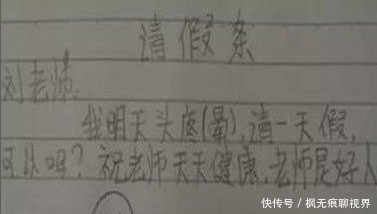 请假条
刘老师.
我明天头疼(晕)请一天假,
可以吗?祝老师天天健康,老师是好人
快传号/枫无痕聊视界